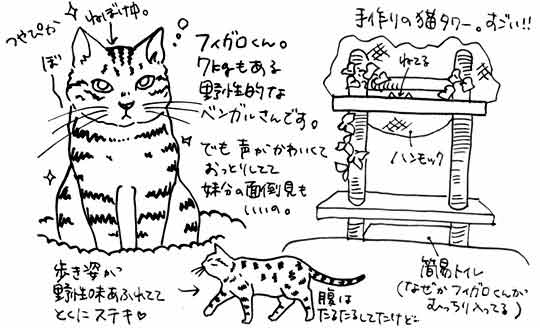 ねぼけ中。
つやぴか
ぼ
フィガロくん。
7kgもある
野性的な
ベンガルさんです。
でも声がかわいくて
おっとりしてて
妹分の面倒見も
いいの。
手作りの猫タワー。すごい!!
ねてる
ハンモック
簡易トイレ
(なぜかフィガロくんが
むっちり入ってる)
歩き姿が
野性味あふれてて
とくにステキ♡
腹は
たるたるしてたけど…